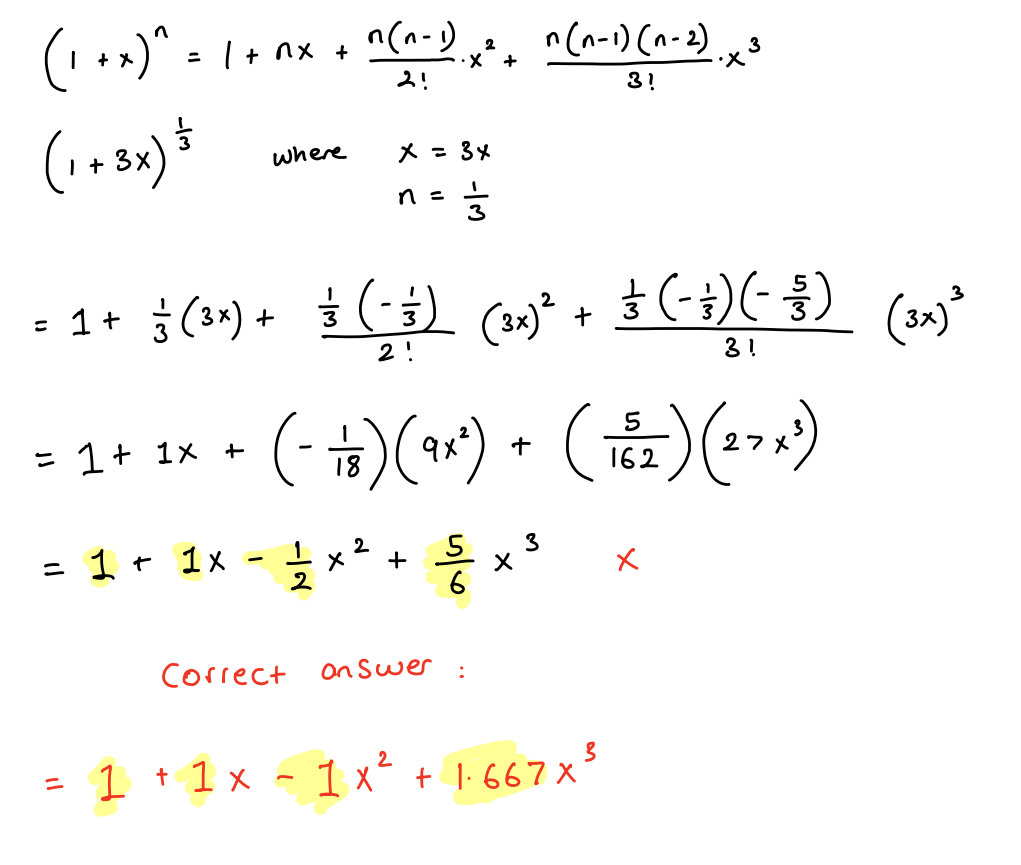 (1 + x)^n = 1 + nx + n(n-1)/2! · x² + n(n-1)(n-2)/3! · x³
(1 + 3x)^(1/3) where x = 3x
n = 1/3
= 1 + 1/3 (3x) + (1/3 (-1/3))/2! (3x)² + (1/3 (-1/3)(-5/3))/3! (3x)³
= 1 + 1x + (-1/18)(9x²) + (5/162)(27x³)
= 1 + 1x - 1/2 x² + 5/6 x³ x
Correct answer :
= 1 + 1x - 1x² + 1.667x³